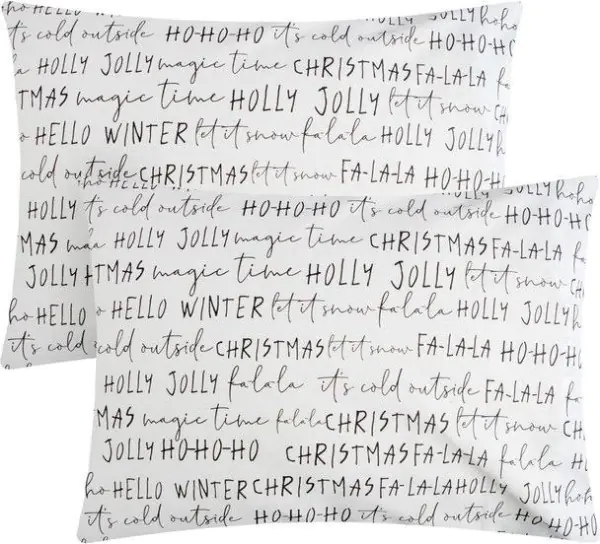 JOLLY hoho
it's cold outside HO-HO-HO it's cold outside HO-HO-H
HOLLY JOLLY magic time CHRISTMAS FA-LA-LA
TMAS magic time HOLLY JOLLY let it snow CH
HELLO WINTER let it snow falala HOLLY JOLLY h
cold outside CHRISTMAS let it snow FA-LA-LA HO-HO-HO
HOLLY
MAS
JOLLY
ho HELLO
it's cold
HELLO JOLLY hoho
it's cold outside HO-HO-HO it's cold outside HO-HO-HO
HOLLY JOLLY magic time CHRISTMAS FA-LA-LA fa
TMAS magic time HOLLY JOLLY let it snow CH
HELLO WINTER let it snow falala HOLLY JOLLY h
cold outside CHRISTMAS let it snow FA-LA-LA HO-HO-H
HOLLY JOLLY falala it's cold outside FA-LA-LA fa
MAS magic time falala CHRISTMAS let it snow CH
JOLLY HO-HO-HO CHRISTMAS FA-LA-LA HO
ho HELLO WINTER CHRISTMAS FA-LA-LA HOLLY JOLLY hoho
it's cold outside HO-HO-HO it's cold outside HO-HO-HO